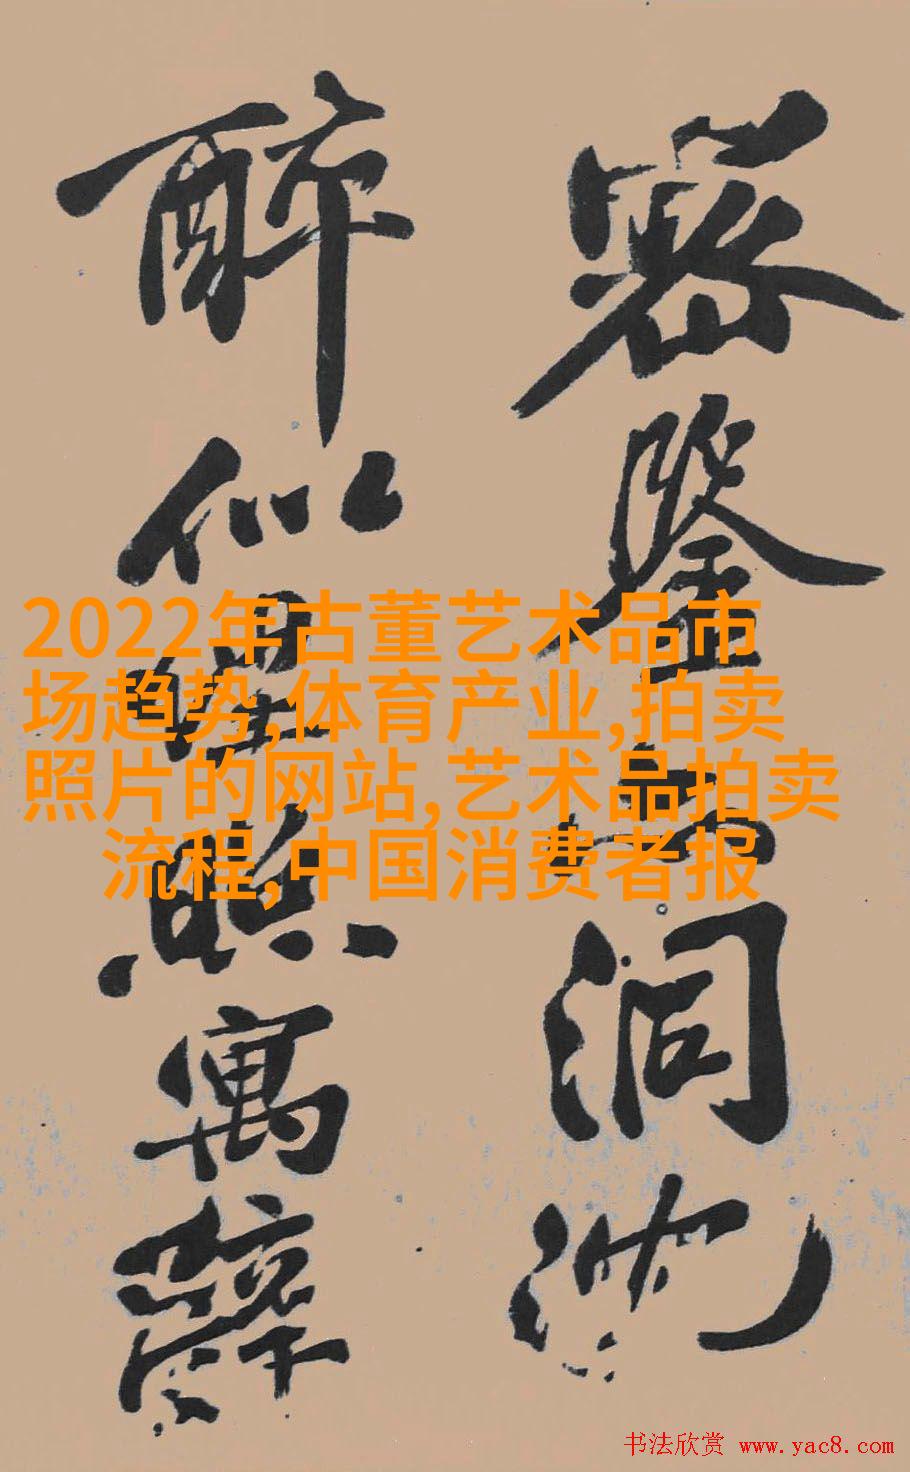 密鑒亦洞沈
醉似埋照寓辭
2022年古董艺术品市
场趋势,体育产业,拍卖
照片的网站,艺术品拍卖
流程,中国消费者报
书法欣赏 www.yac8.com